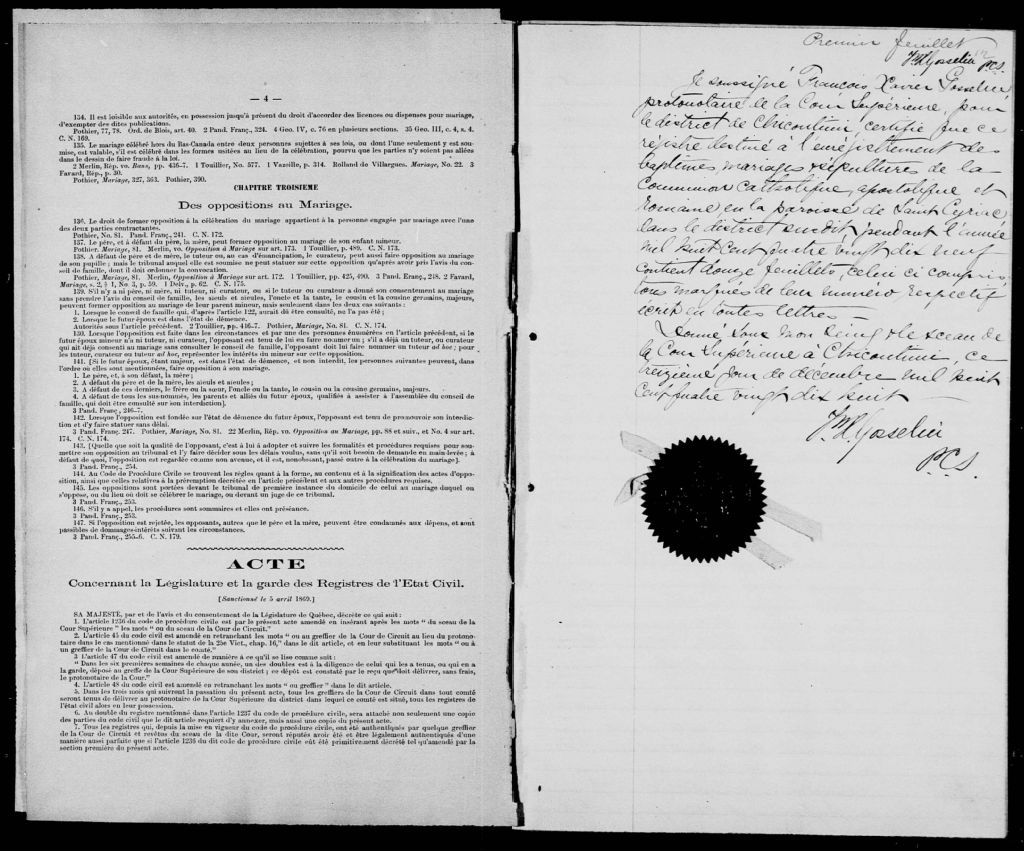 — 4 —
134. Il est loisible aux autorités, en possession jusqu'à présent du droit d'accorder des licences ou dispenses pour mariage,
d'exempter des dites publications.
Pothier, 77, 78. Ord. de Blois, art. 40. 2 Pand. Franç., 324. 4 Geo. IV, c. 76 en plusieurs sections. 35 Geo. III, c. 4, s. 4.
C. N. 169.
135. Le mariage célébré hors du Bas-Canada entre deux personnes sujettes à ses lois, ou dont l'une seulement y est sou-
mise, est valable, s'il est célébré dans les formes usitées au lieu de la célébration, pourvu que les parties n'y soient pas allées
dans le dessin de faire fraude à la loi.
2 Merlin, Rép. vo. Bans, pp. 436-7. 1 Touillier, No. 577. 1 Vazeille, p. 314. Rolland de Villargues. Mariage, No. 22. 3
Favard, Rép., p. 30.
Pothier, Mariage, 327, 363. Pothier, 390.
CHAPITRE TROISIEME
Des oppositions au Mariage.
136. Le droit de former opposition à la célébration du mariage appartient à la personne engagée par mariage avec l'une
des deux parties contractantes.
Pothier, No. 81. Pand. Franç., 241. C. N. 172.
137. Le père, et à défaut du père, la mère, peut former opposition au mariage de son enfant mineur.
Pothier. Mariage, 81. Merlin, vo. Opposition à Mariage sur art. 173. 1 Touillier, p. 489. C. N. 173.
138. A défaut de père et de mère, le tuteur ou, au cas d'émancipation, le curateur, peut aussi faire opposition au mariage
de son pupille ; mais le tribunal auquel elle est soumise ne peut statuer sur cette opposition qu'après avoir pris l'avis du con-
seil de famille, dont il doit ordonner la convocation.
Pothier, Mariage, 81. Merlin, Opposition à Mariage sur art. 172. 1 Touillier, pp. 425, 490. 3 Pand. Franç., 248. 2 Favard,
Mariage, s. 2, § 1, No. 3, p. 59. 1 Delv., p. 62. C. N. 175.
139. S'il n'y a ni père, ni mère, ni tuteur, ni curateur, ou si le tuteur ou curateur a donné son consentement au mariage
sans prendre l'avis du conseil de famille, les aïeuls et aïeules, l'oncle et la tante, le cousin et la cousine germains, majeurs,
peuvent former opposition au mariage de leur parent mineur, mais seulement dans les deux cas suivants :
1. Lorsque le conseil de famille qui, d'après l'article 122, aurait dû être consulté, ne l'a pas été ;
2. Lorsque le futur époux est dans l'état de démence.
Autorités sous l'article précédent. 2 Touillier, pp. 416-7. Pothier, Mariage, No. 81. C. N. 174.
130. Lorsque l'opposition est faite dans les circonstances et par une des personnes énumérées en l'article précédent, si le
futur époux mineur n'a ni tuteur, ni curateur, l'opposant est tenu de lui en faire nommer un ; s'il a déjà un tuteur, ou curateur
qui ait déjà consenti au mariage sans consulter le conseil de famille, l'opposant doit lui faire nommer un tuteur ad hoc ; pour
les tuteur, curateur ou tuteur ad hoc, représenter les intérêts du mineur sur cette opposition.
141. [Si le futur époux, étant majeur, est dans l'état de démence, et non interdit, les personnes suivantes peuvent, dans
l'ordre où elles sont mentionnées, faire opposition à son mariage.
1. Le père, et, à son défaut, la mère ;
2. A défaut du père et de la mère, les aïeuls et aïeules ;
3. A défaut de ces derniers, le frère ou la sœur, l'oncle ou la tante, le cousin ou la cousine germains, majeurs.
4. A défaut de tous les sus-nommés, les parents et alliés du futur époux, qualifiés à assister à l'assemblée du conseil de
famille, qui doit être consulté sur son interdiction].
3 Pand. Franç., 246-7.
142. Lorsque l'opposition est fondée sur l'état de démence du futur époux, l'opposant est tenu de promouvoir son interdic-
tion et d'y faire statuer sans délai.
3 Pand. Franç. 247. Pothier, Mariage, No. 81. 22 Merlin, Rép. vo. Opposition au Mariage, pp. 88 et suiv., et No. 4 sur art.
174. C. N. 174.
143. [Quelle que soit la qualité de l'opposant, c'est à lui à adopter et suivre les formalités et procédures requises pour sou-
mettre son opposition au tribunal et l'y faire décider sous les délais voulus, sans qu'il soit besoin de demande en main-levée ; à
défaut de quoi, l'opposition est regardée comme non avenue, et il est, nonobstant, passé outre à la célébration du mariage].
3 Pand. Franç., 254.
144. Au Code de Procédure Civile se trouvent les règles quant à la forme, au contenu et à la signification des actes d'oppo-
sition, ainsi que celles relatives à la péremption décrétée en l'article précédent et aux autres procédures requises.
145. Les oppositions sont portées devant le tribunal de première instance du domicile de celui au mariage duquel on
s'oppose, ou du lieu où doit se célébrer le mariage, ou devant un juge de ce tribunal.
3 Pand. Franç., 253.
146. S'il y a appel, les procédures sont sommaires et elles ont préséance.
3 Pand. Franç., 253.
147. Si l'opposition est rejetée, les opposants, autres que le père et la mère, peuvent être condamnés aux dépens, et sont
passibles de dommages-intérêts suivant les circonstances.
3 Pand. Franç., 255-6. C. N. 179.
ACTE
Concernant la Législature et la garde des Registres de l'Etat Civil.
[Sanctionné le 5 avril 1869.]
SA MAJESTÉ, par et de l'avis et du consentement de la Législature de Québec, décrète ce qui suit :
1. L'article 1236 du code de procédure civile est par le présent acte amendé en insérant après les mots " du sceau de la
Cour Supérieure " les mots " ou du sceau de la Cour de Circuit."
2. L'article 45 du code civil est amendé en retranchant les mots " ou au greffier de la Cour de Circuit au lieu du protono-
taire dans le cas mentionné dans le statut de la 25e Vict., chap. 16," dans le dit article, et en leur substituant les mots " ou à
un greffier de la Cour de Circuit dans le comté."
3 L'article 47 du code civil est amendé de manière à ce qu'il se lise comme suit :
" Dans les six premières semaines de chaque année, un des doubles est à la diligence de celui qui les a tenus, ou qui en a
la garde, déposé au greffe de la Cour Supérieure de son district ; ce dépôt est constaté par le reçu que doit délivrer, sans frais,
le protonotaire de la Cour."
4. L'article 48 du code civil est amendé en retranchant les mots " ou greffier " dans le dit article.
5. Dans les trois mois qui suivront la passation du présent acte, tous les greffiers de la Cour de Circuit dans tout comté
seront tenus de délivrer au protonotaire de la Cour Supérieure du district dans lequel ce comté est situé, tous les registres de
l'état civil alors en leur possession.
6. Au double du registre mentionné dans l'article 1237 du code de procédure civile, sera attaché non seulement une copie
des parties du code civil que le dit article requiert d'y annexer, mais aussi une copie du présent acte.
7. Tous les registres qui, depuis la mise en vigueur du code de procédure civile, ont été authentiqués par quelque greffier
de la Cour de Circuit et revêtus du sceau de la dite Cour, seront réputés avoir été et être légalement authentiqués d'une
manière aussi parfaite que si l'article 1236 du dit code de procédure civile eût été primitivement décrété tel qu'amendé par la
section première du présent acte.
Premier feuillet
Gosselin
P.C.S.
Je soussigné François Xavier Gosselin
protonotaire de la Cour Supérieure, pour
le district de Chicoutimi, certifie que ce
régistre destiné à l'enrégistrement des
baptêmes, mariages, sépultures de la
Communion catholique, apostolique et
romaine en la paroisse de Saint Cyriac
dans le district susdit pendant l'année
mil huit cent quatre vingt dix neuf
contient douze feuillets, celui ci compris
tous marqués de leur numéro respectif
écrit en toutes lettres —
Donné sous mon seing & le sceau de
la Cour Supérieure à Chicoutimi, ce
treizième jour de décembre mil huit
cent quatre vingt dix huit
Gosselin
P.C.S.